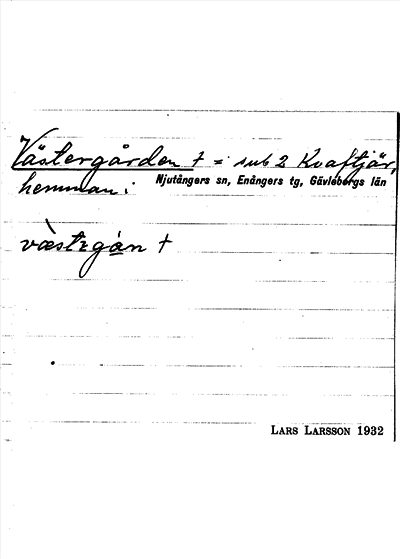 Västergården † = sub 2 Kvaftjär,
hemman:
Njutångers sn, Enångers tg, Gävleborgs län
væstɩgàn †
LARS LARSSON 1932